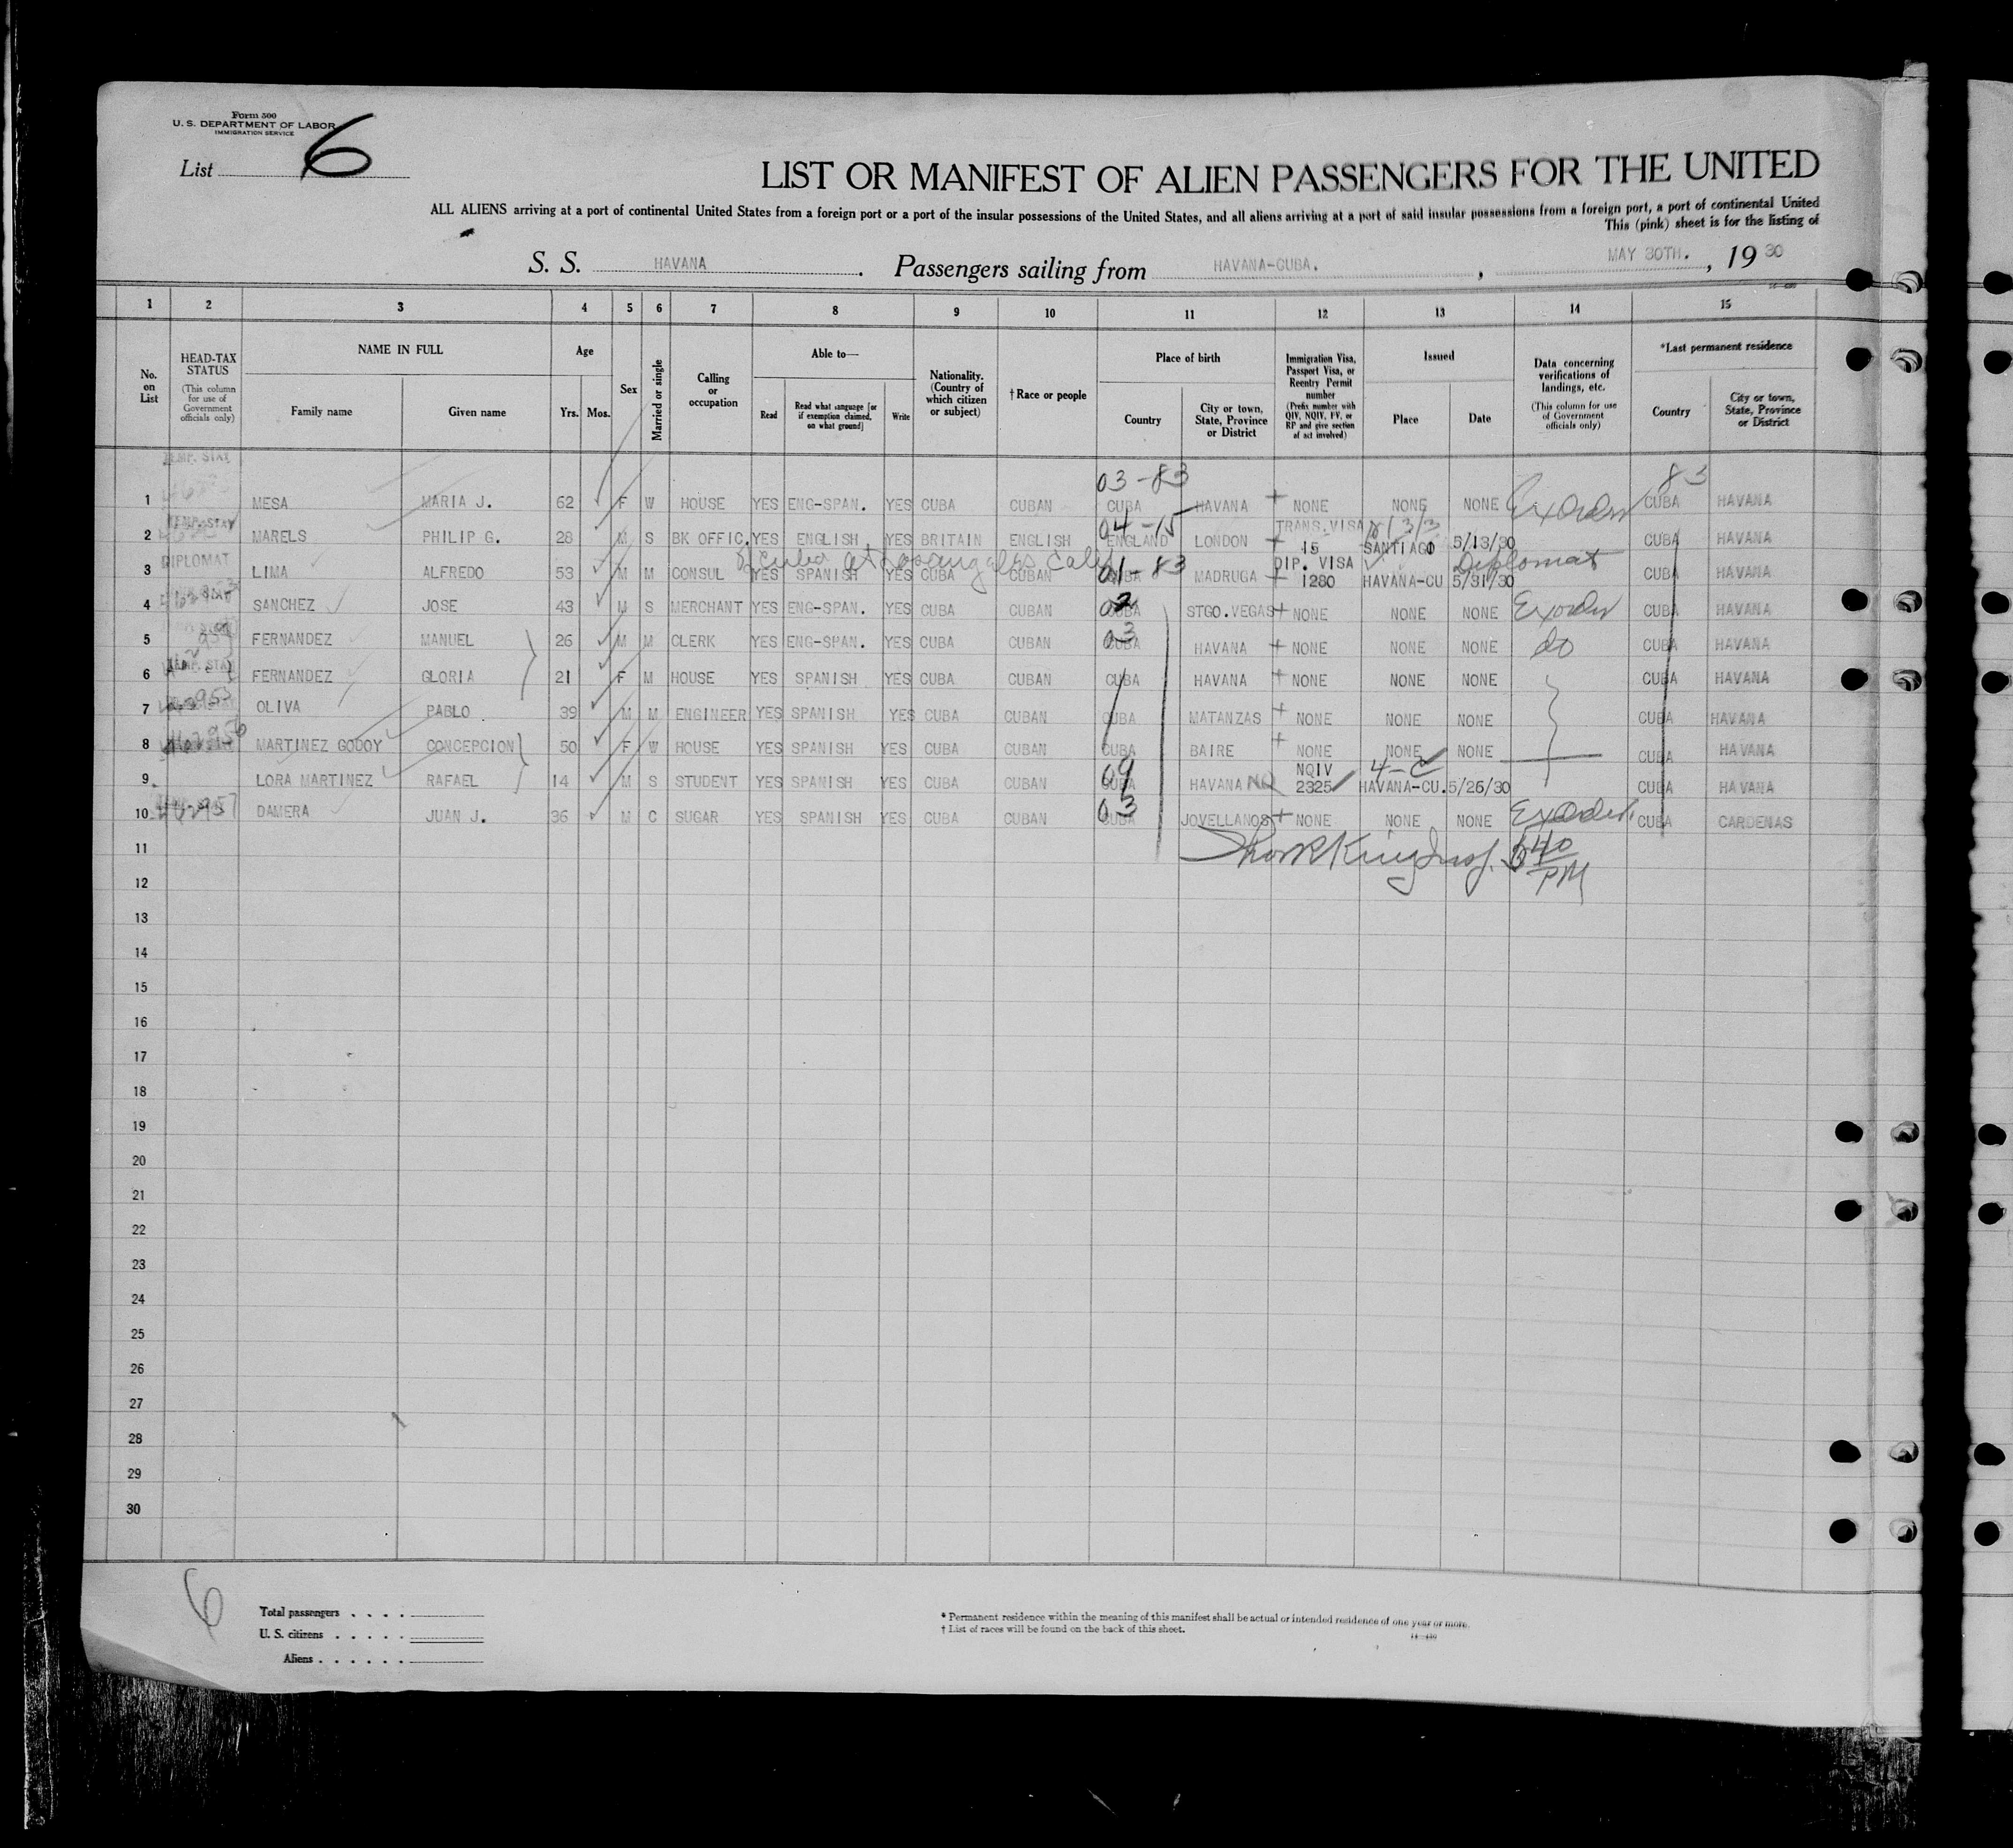 Form 500
U. S. DEPARTMENT OF LABOR
IMMIGRATION SERVICE
List 6
LIST OR MANIFEST OF ALIEN PASSENGERS FOR THE UNITED
ALL ALIENS arriving at a port of continental United States from a foreign port or a port of the insular possessions of the United States, and all aliens arriving at a port of said insular possessions from a foreign port, a port of continental United
This (pink) sheet is for the listing of
S. S. HAVANA. Passengers sailing from HAVANA-CUBA. , MAY 30TH. , 19 30
1 2 3 4 5 6 7 8 9 10 11 12 13 14 15
No. on List
HEAD-TAX STATUS (This column for use of Government officials only)
NAME IN FULL
Family name Given name
Age
Yrs. Mos.
Sex
Married or single
Calling or occupation
Able to—
Read Read what language [or if exemption claimed, on what ground] Write
Nationality. (Country of which citizen or subject)
† Race or people
Place of birth
Country City or town, State, Province or District
Immigration Visa, Passport Visa, or Reentry Permit number (Prefix number with QIV, NQIV, PV, or RP and give section of act involved)
Issued
Place Date
Data concerning verifications of landings, etc. (This column for use of Government officials only)
*Last permanent residence
Country City or town, State, Province or District
TEMP. STAY
03-83 83
1 MESA MARIA J. 62 F W HOUSE YES ENG-SPAN. YES CUBA CUBAN CUBA HAVANA NONE NONE NONE CUBA HAVANA
TEMP. STAY 04-15 TRANS. VISA
2 MARELS PHILIP G. 28 M S BK OFFIC. YES ENGLISH YES BRITAIN ENGLISH ENGLAND LONDON 15 SANTIAGO 5/13/30 CUBA HAVANA
DIPLOMAT of Cuba at Los angeles Calif 01-83 DIP. VISA Diplomat
3 LIMA ALFREDO 53 M M CONSUL YES SPANISH YES CUBA CUBAN CUBA MADRUGA 1280 HAVANA-CU 5/31/30 CUBA HAVANA
4 SANCHEZ JOSE 43 M S MERCHANT YES ENG-SPAN. YES CUBA CUBAN CUBA STGO.VEGAS NONE NONE NONE CUBA HAVANA
5 FERNANDEZ MANUEL 26 M M CLERK YES ENG-SPAN. YES CUBA CUBAN 03 CUBA HAVANA NONE NONE NONE do CUBA HAVANA
TEMP. STAY
6 FERNANDEZ GLORIA 21 F M HOUSE YES SPANISH YES CUBA CUBAN CUBA HAVANA NONE NONE NONE CUBA HAVANA
7 OLIVA PABLO 39 M M ENGINEER YES SPANISH YES CUBA CUBAN CUBA MATANZAS NONE NONE NONE CUBA HAVANA
8 MARTINEZ GODOY CONCEPCION 50 F W HOUSE YES SPANISH YES CUBA CUBAN CUBA BAIRE NONE NONE NONE CUBA HAVANA
NQIV 4-C
9 LORA MARTINEZ RAFAEL 14 M S STUDENT YES SPANISH YES CUBA CUBAN CUBA HAVANA NQ 2325 HAVANA-CU. 5/26/30 CUBA HAVANA
10 DAMERA JUAN J. 36 M C SUGAR YES SPANISH YES CUBA CUBAN 03 CUBA JOVELLANOS NONE NONE NONE CUBA CARDENAS
11 540 PM
12
13
14
15
16
17
18
19
20
21
22
23
24
25
26
27
28
29
30
6
Total passengers . . . .
U. S. citizens . . . . .
Aliens . . . . . .
* Permanent residence within the meaning of this manifest shall be actual or intended residence of one year or more.
† List of races will be found on the back of this sheet.